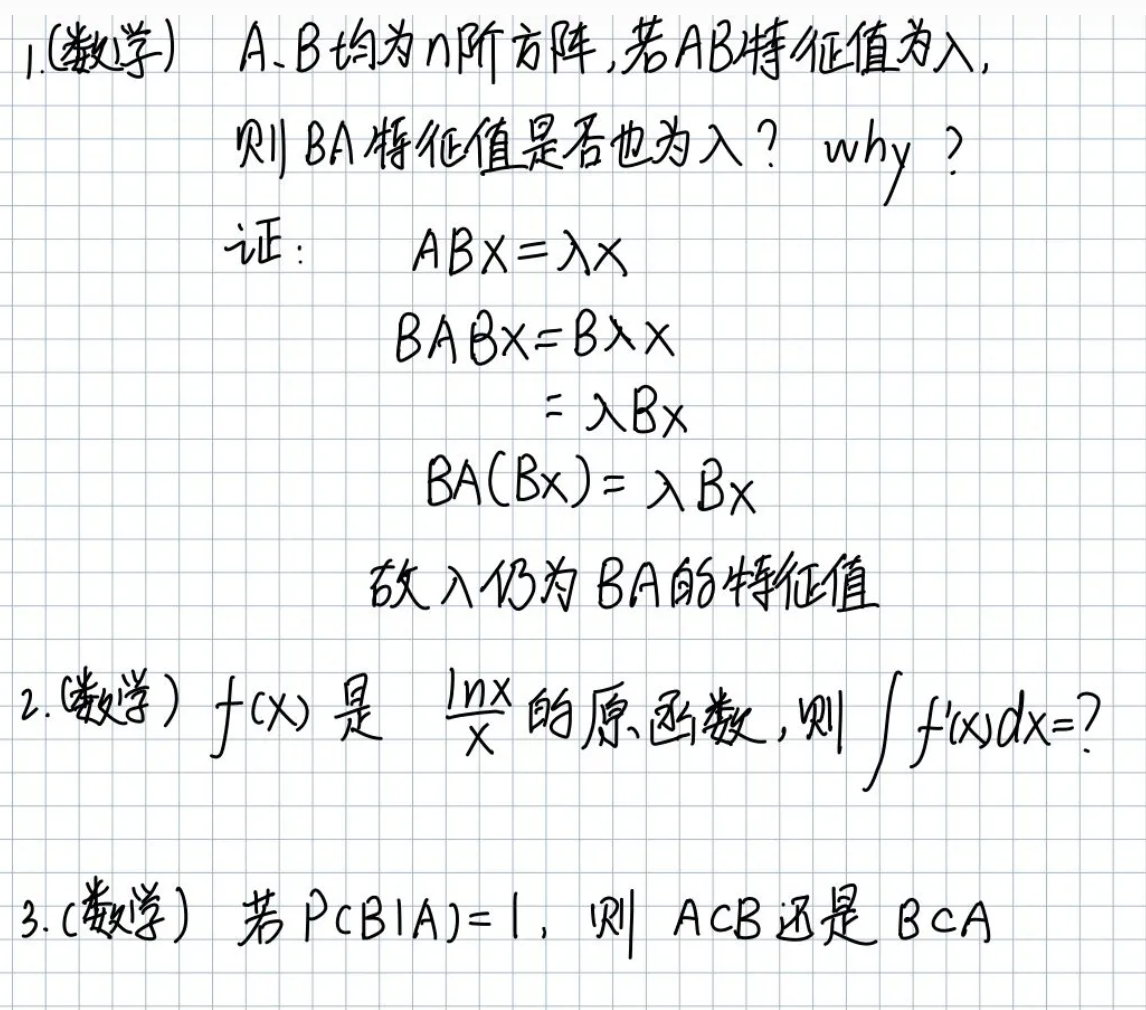 1.(数学) A、B均为n阶方阵,若AB特征值为λ,
则BA特征值是否也为λ? why ?
证: ABX=λX
BABX=BλX
=λBX
BA(BX)=λBX
故λ仍为BA的特征值
2.(数学) f(x)是 lnx/x 的原函数,则∫f'(x)dx=?
3.(数学) 若P(B|A)=1, 则 A⊂B还是B⊂A